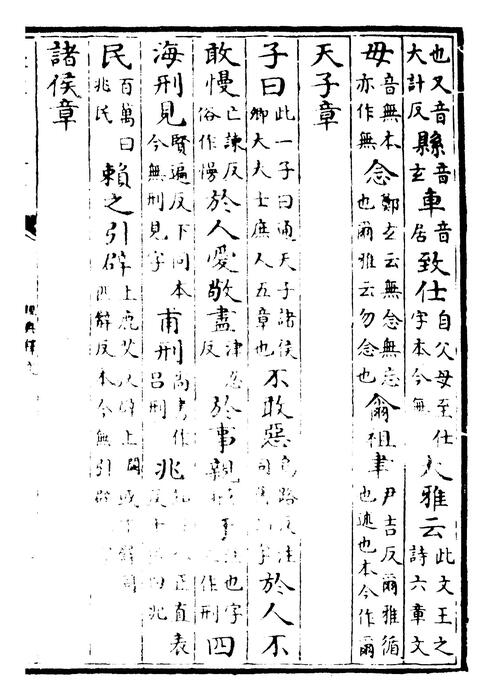 也又音大計反縣音玄車音居致仕自父母至仕字本今無大雅云此文王之詩六章文
毋音無本亦作無念鄭玄云無念無忘也爾雅云勿念也爾祖聿尹吉反爾雅循也述也本今作爾
天子章
子曰此一子曰通天子諸侯卿大夫士庶人五章也不敢惡烏路反注於人不
敢慢亡諫反俗作慢於人愛敬盡津忍反於事親也字作刑四
海刑見賢遍反下同本今無刑見字甫刑尚書作呂刑兆正直表四兆
民百萬曰兆民賴之引辟上反本今無引辟
諸侯章
經典釋文